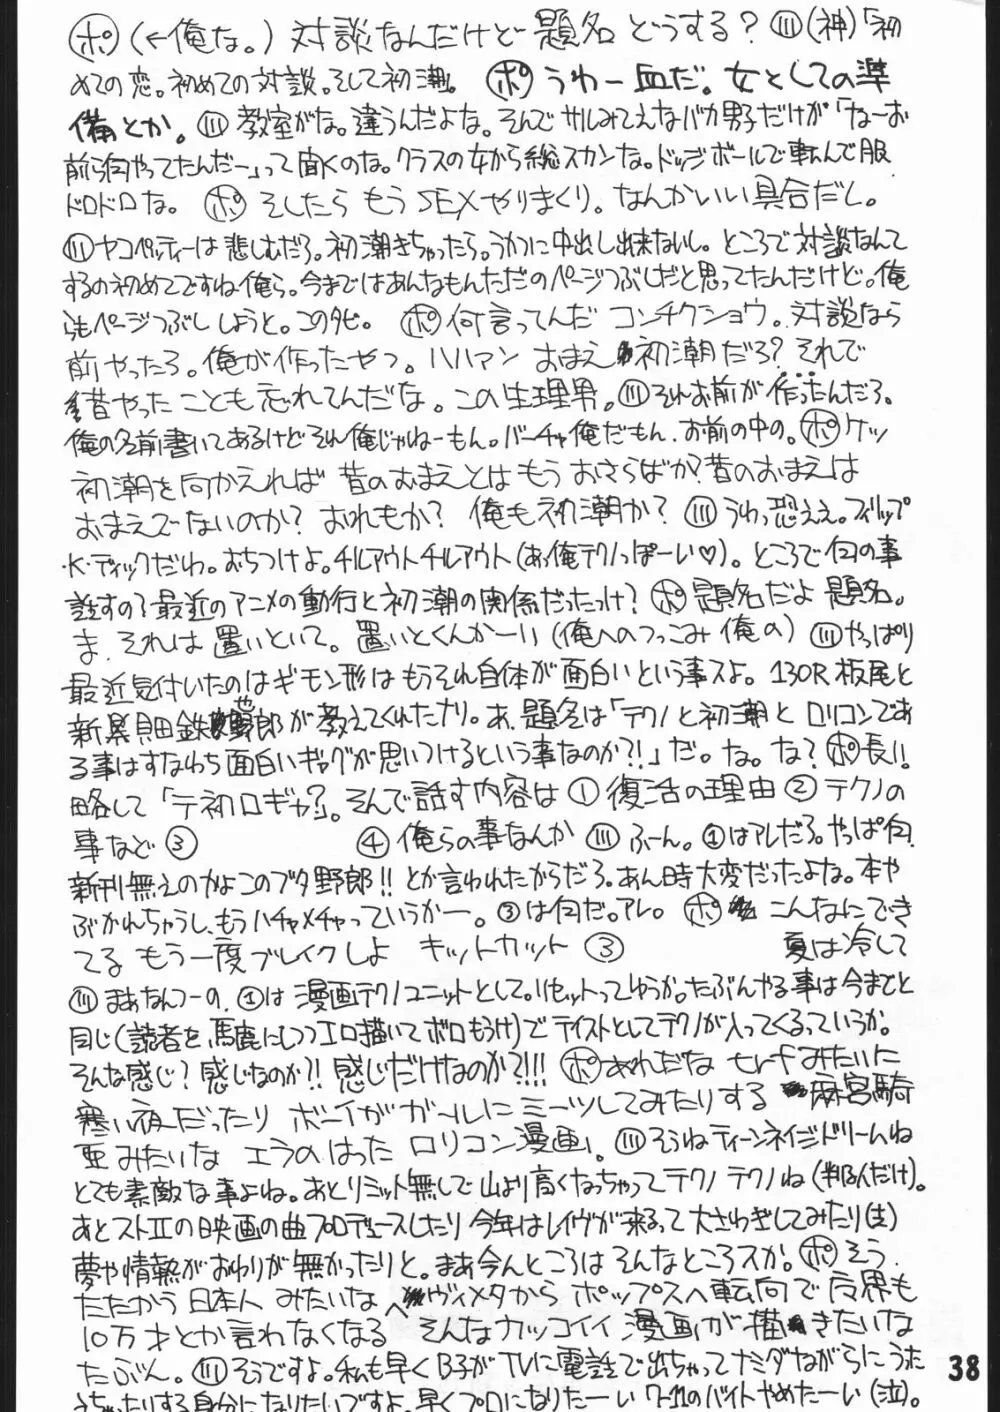 ㋭(←俺な。)対談なんだけど題名どうする?㈽(神)「初
めての恋。初めての対談。そして初潮」。㋭うわー血だ。女としての準
備とか。㈽教室がな。違うんだよな。そんでサルみてえなバカ男子だけが「なーお
前ら何やってたんだー」って聞くのな。クラスの女から総スカンな。ドッジボールで転んで服
ドロドロな。㋭そしたらもうSEXやりまくり。なんかいい具合だし。
㈽ヤコペッティーは悲しむだろ。初潮きちゃったら。うかつに中出し出来ないし。ところで対談なんて
するの初めてですね俺ら。今まではあんなもんただのページつぶしだと思ってたんだけど。俺
らもページつぶししようと。このタビ。㋭何言ってんだコンチクショウ。対談なら
前やったろ。俺が作ったやつ。ハハアンおまえ初潮だろ?それで
昔やったことも忘れてんだな。この生理男。㈽それお前が作ったんだろ。
俺の名前書いてあるけどそれ俺じゃねーもん。バーチャ俺だもん、お前の中の。㋭ケッ
初潮を向かえれば昔のおまえとはもうおさらばか?昔のおまえは
おまえでないのか?おれもか?俺も初潮か?㈽うわっ恐ええ。フィリップ
・K・ディックだわ。おちつけよ。チルアウトチルアウト(あっ俺テクノっぽーい♡)。ところで何の事
話すの?最近のアニメの動行と初潮の関係だったっけ?㋭題名だよ題名。
ま、それは置いといて。置いとくんかーい(俺へのつっこみ俺の)㈽やっぱり
最近気付いたのはギモン形はもうそれ自体が面白いという事スよ。130R板尾と
新黒貝田鉄野郎が教えてくれたナリ。あ、題名は「テクノと初潮とロリコンであ
る事はすなわち面白いギャグが思いつけるという事なのか?!」だ。な。な?㋭長い!
略して「テ初ロギャ?」。そんで話す内容は①復活の理由②テクノの
事など③　　④俺らの事なんか㈽ふーん。①はアレだろ。やっぱ何、
新刊無えのかよこのブタ野郎!!とか言われたからだろ。あん時大変だったよな。本や
ぶかれちゃうし、もうハチャメチャっていうかー。③は何だ。アレ。㋭こんなにでき
てるもう一度ブレイクしよ　キットカット③　　夏は冷して
㈽まあなんつーの。①は漫画テクノユニットとして。リセットってゆうか。たぶんやる事は今までと
同じ(読者を馬鹿にしつつエロ描いてボロもうけ)でテイストとしてテクノが入ってくるっていうか。
そんな感じ?感じなのか?!感じだけなのか?!!!㋭あれだな trfみたいに
寒い夜だったりボーイがガールにミーツしてみたりする麻宮騎
亜みたいなエラのはったロリコン漫画」。㈽そうねティーンネイジドリームね
とても素敵な事よね。あとリミット無しで山より高くなっちゃってテクノテクノね(判る人だけ)。
あとストⅡの映画の曲プロデュースしたり今年はレイヴが来るって大さわぎしてみたり(支)
夢や情熱がおわりが無かったりと。まあ今んところはそんなところスか。㋭そう、
たたかう日本人みたいなヘヴィメタからポップスへ転向で反界も
10万才とか言わなくなるそんなカッコイイ漫画が描きたいな
たぶん。㈽そうですよ。私も早くB子がTVに電話で出ちゃってナミダながらにうた
うちゃったりする身分になりたいですよ。早くプロになりたーいワー11のバイトやめたーい(泣)。
38